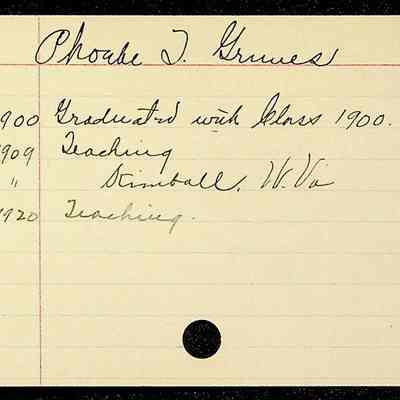 Phoebe T. Grimes
1900 Graduated with Class 1900.
1909 Teaching
" Kimball, W. Va
1920 Teaching.